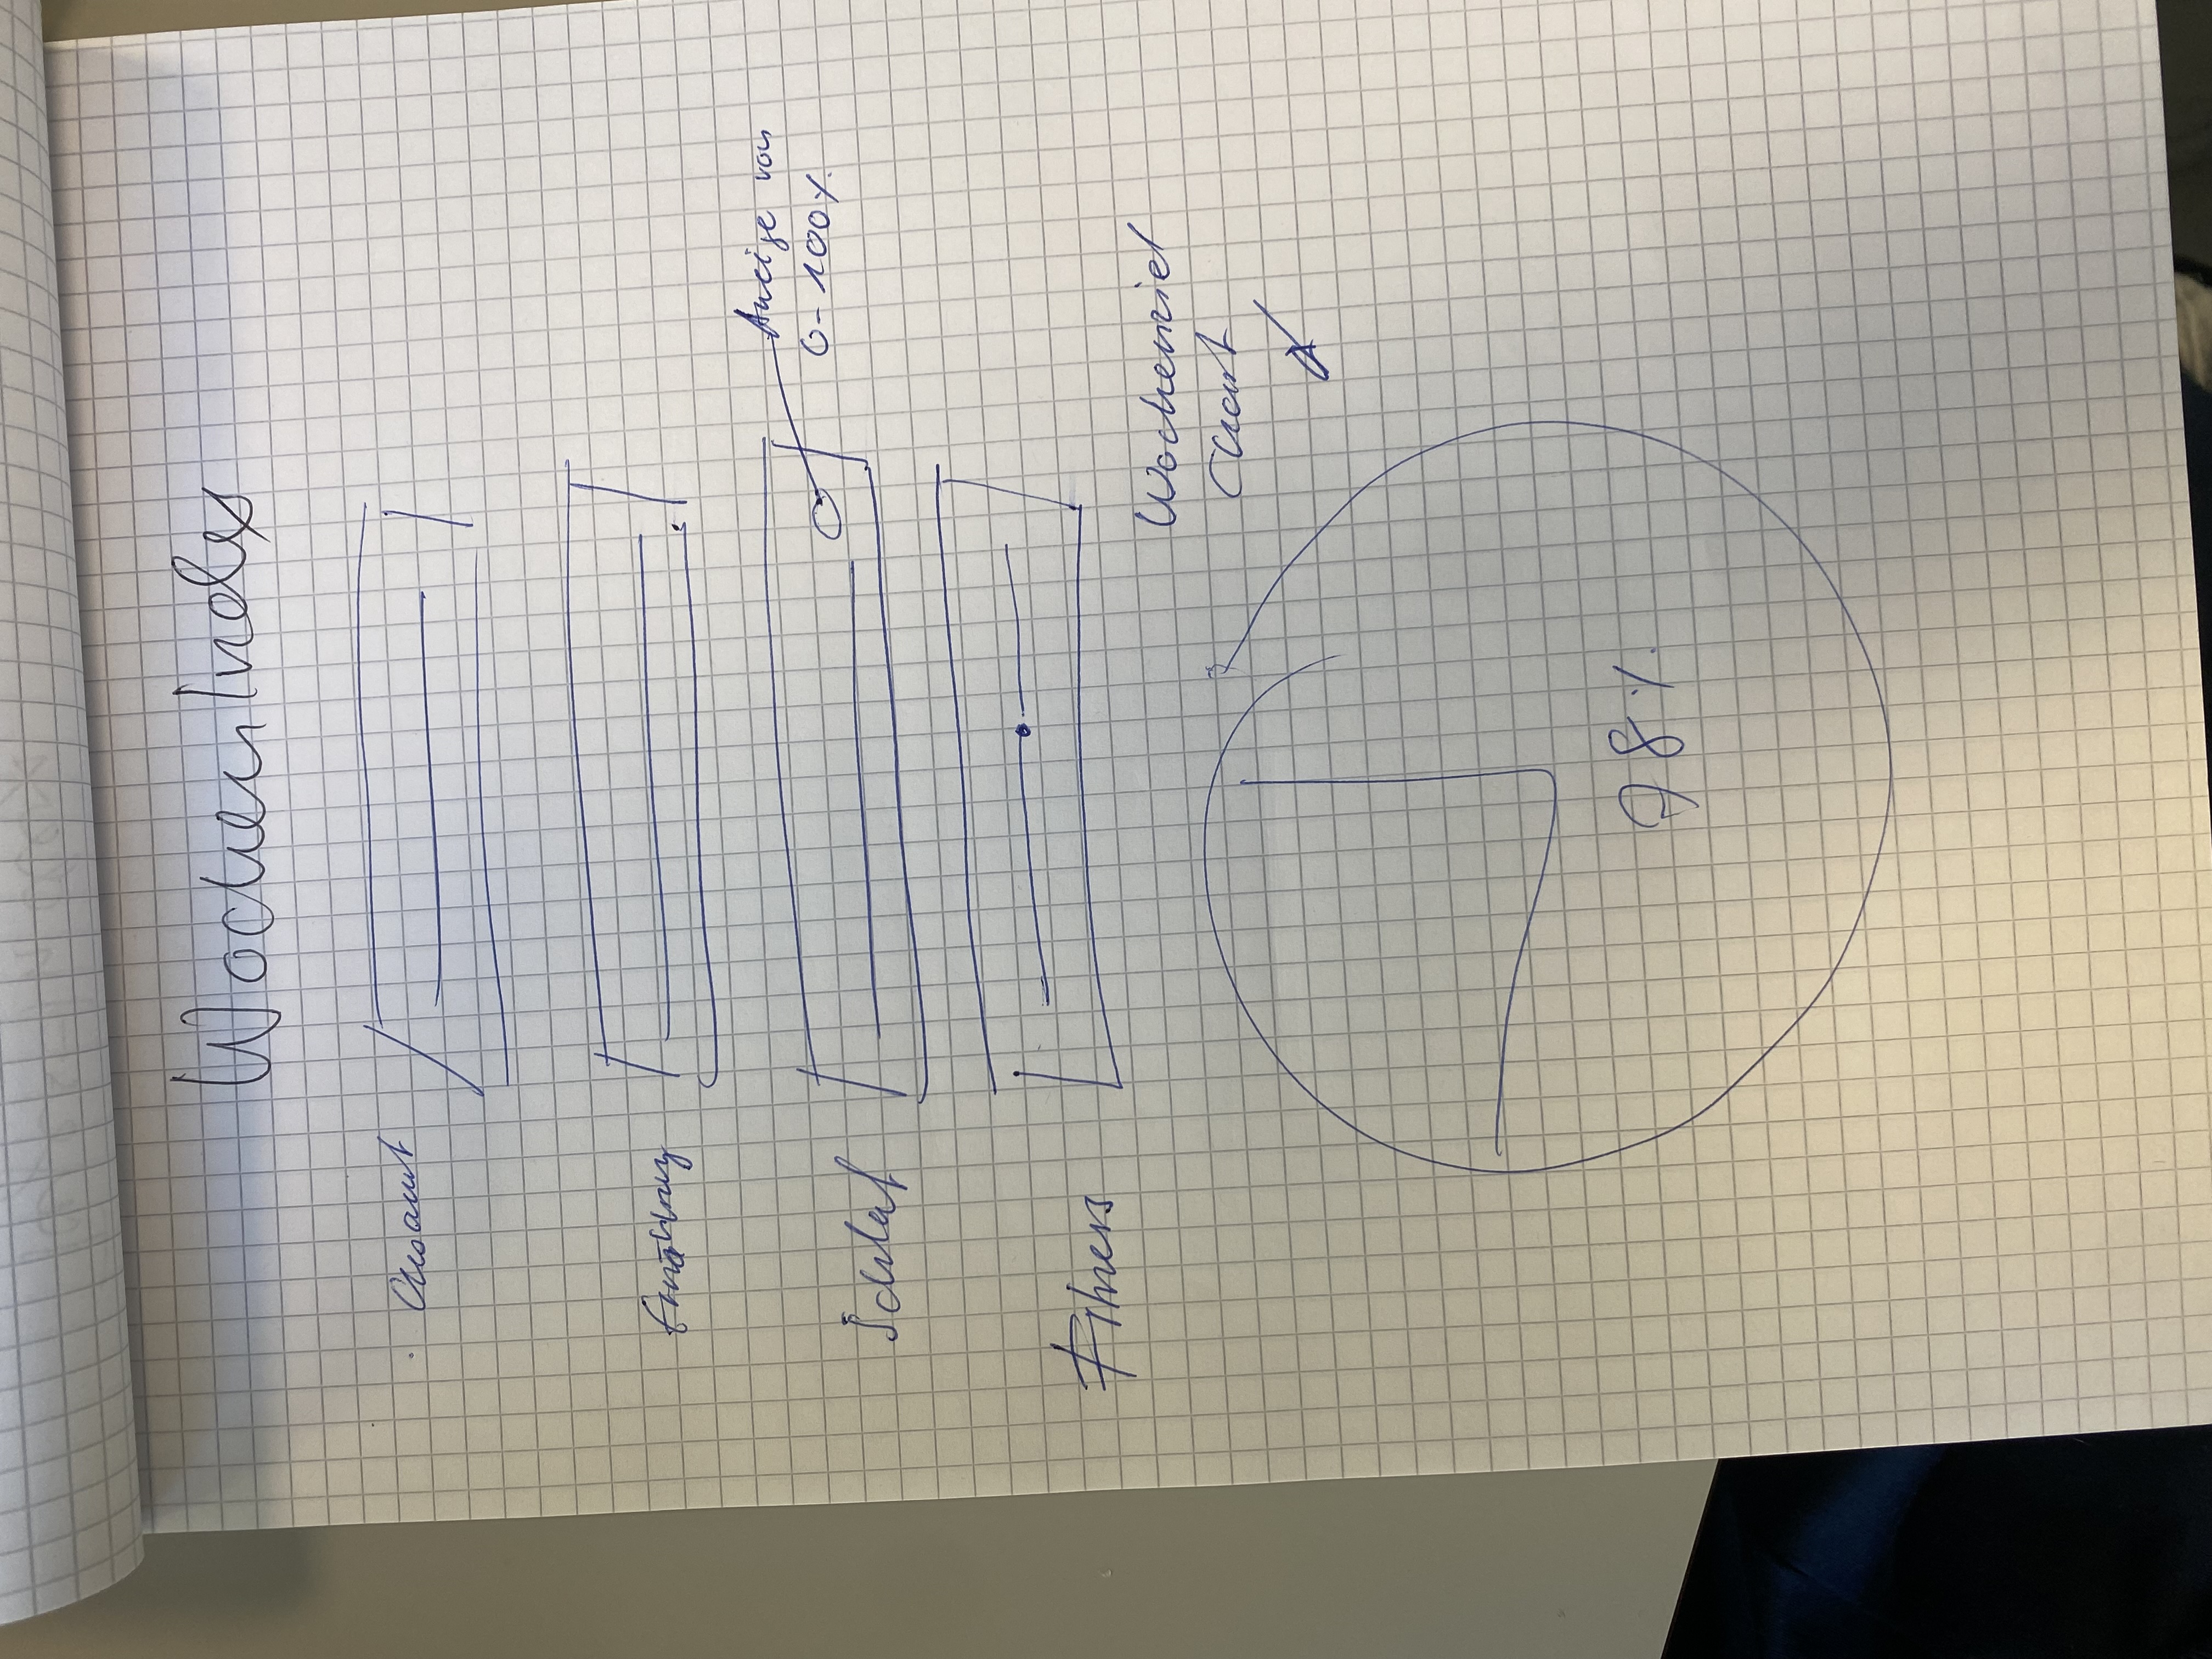 WochenIndex
Gesamt
Ernährung
Anzeige von
0-100%
Schlaf
Fitness
Wochenziel
Chart
78%